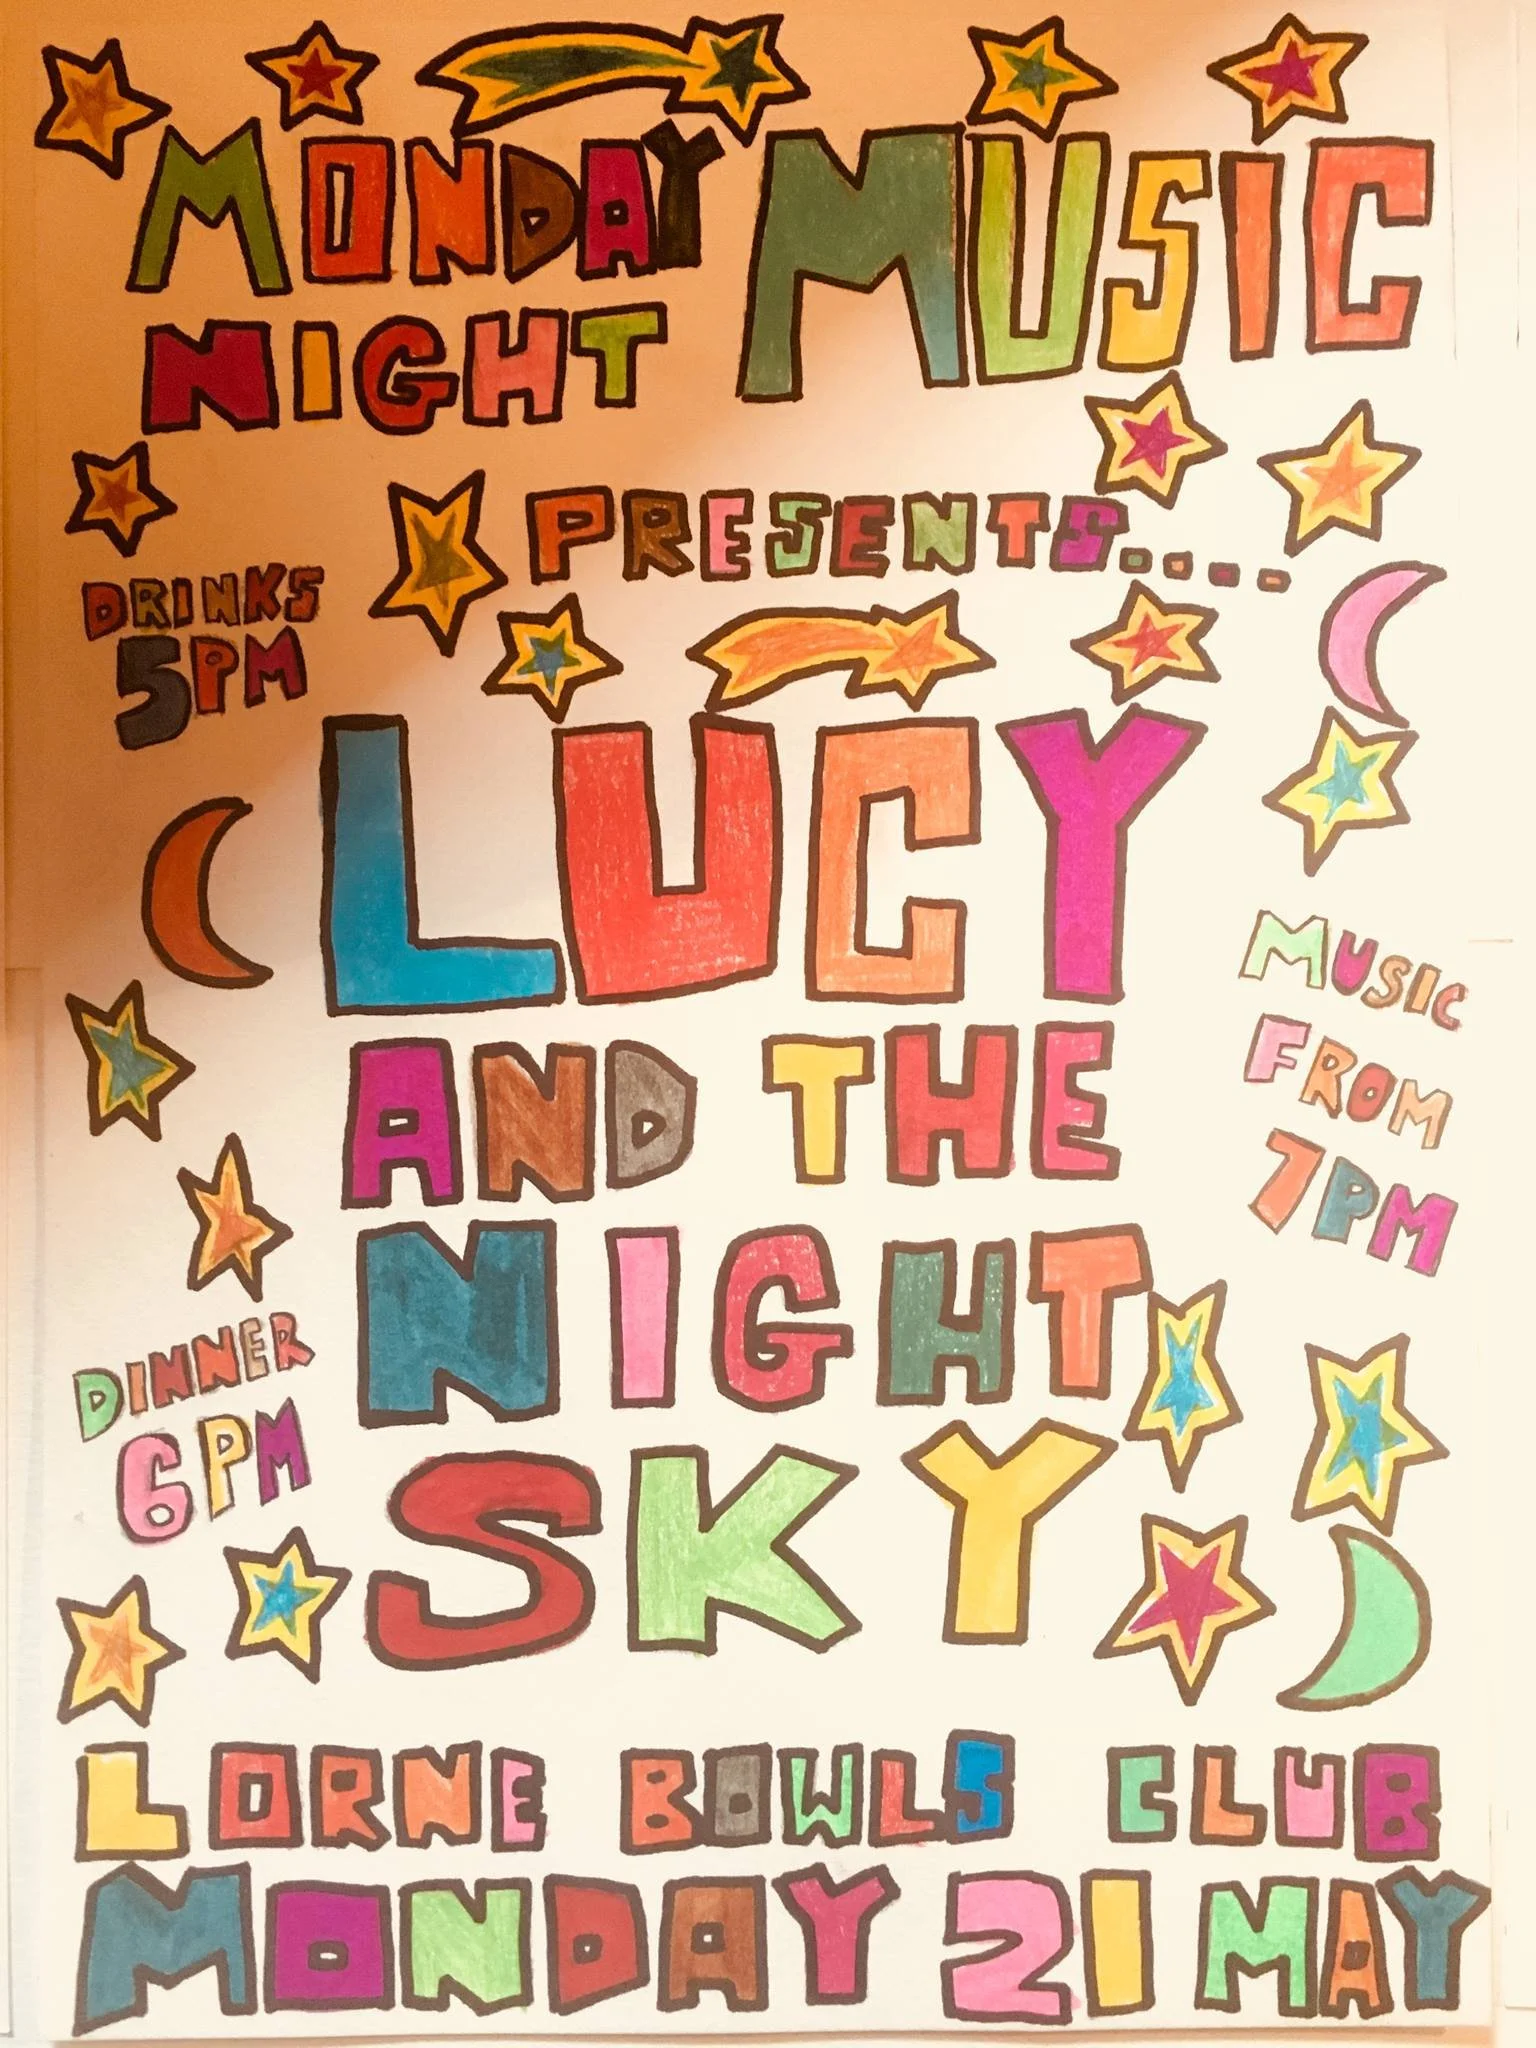 MONDAY MUSIC
NIGHT
PRESENTS....
DRINKS
5PM
LUCY
AND THE
NIGHT
SKY
MUSIC
FROM
7PM
DINNER
6PM
LORNE BOWLS CLUB
MONDAY 21 MAY